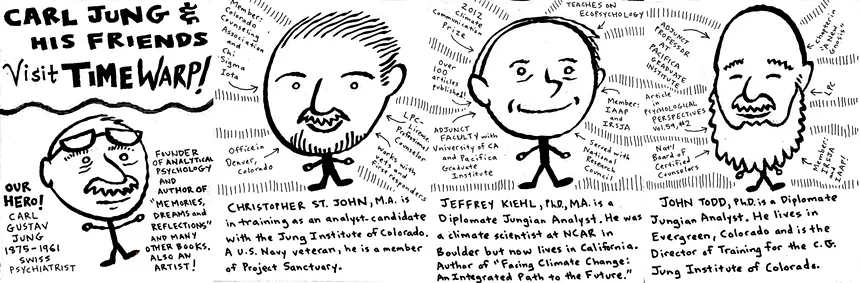 CARL JUNG &
HIS FRIENDS
Visit TIMEWARP!
OUR
HERO!
CARL
GUSTAV
JUNG
1875-1961
SWISS
PSYCHIATRIST
FOUNDER
OF ANALYTICAL
PSYCHOLOGY
AND
AUTHOR OF
"MEMORIES,
DREAMS and
REFLECTIONS"
AND MANY
OTHER BOOKS.
ALSO AN
ARTIST!
Member:
Colorado
Counseling
Association
and
Chi
Sigma
Iota
Office in
Denver,
Colorado
LPC-
License
Professional
Counselor
Works with
Vets and
First Responders
CHRISTOPHER ST. JOHN, M.A. is
in training as an analyst-candidate
with the Jung Institute of Colorado.
A U.S. Navy veteran, he is a member
of Project Sanctuary.
2012
Climate
Communication
Prize
TEACHES ON
ECOPSYCHOLOGY
Over
100
articles
published!
Member:
IAAP
and
IRSJA
ADJUNCT
FACULTY with
University of CA
and Pacifica
Graduate
Institute
Served with
National
Research
Council
JEFFREY KIEHL, PhD, MA. is a
Diplomate Jungian Analyst. He was
a climate scientist at NCAR in
Boulder but now lives in California.
Author of "Facing Climate Change:
An Integrated Path to the Future."
ADJUNCT
PROFESSOR
AT
PACIFICA
GRADUATE
INSTITUTE
Chapter in
"A New
Gnosis"
Article
in
PSYCHOLOGICAL
PERSPECTIVES
Vol. 59, #2
LPC
Nat'l
Board of
Certified
Counselors
Member:
IRSJA
and
IAAP!
JOHN TODD, PhD. is a Diplomate
Jungian Analyst. He lives in
Evergreen, Colorado and is the
Director of Training for the C.G.
Jung Institute of Colorado.